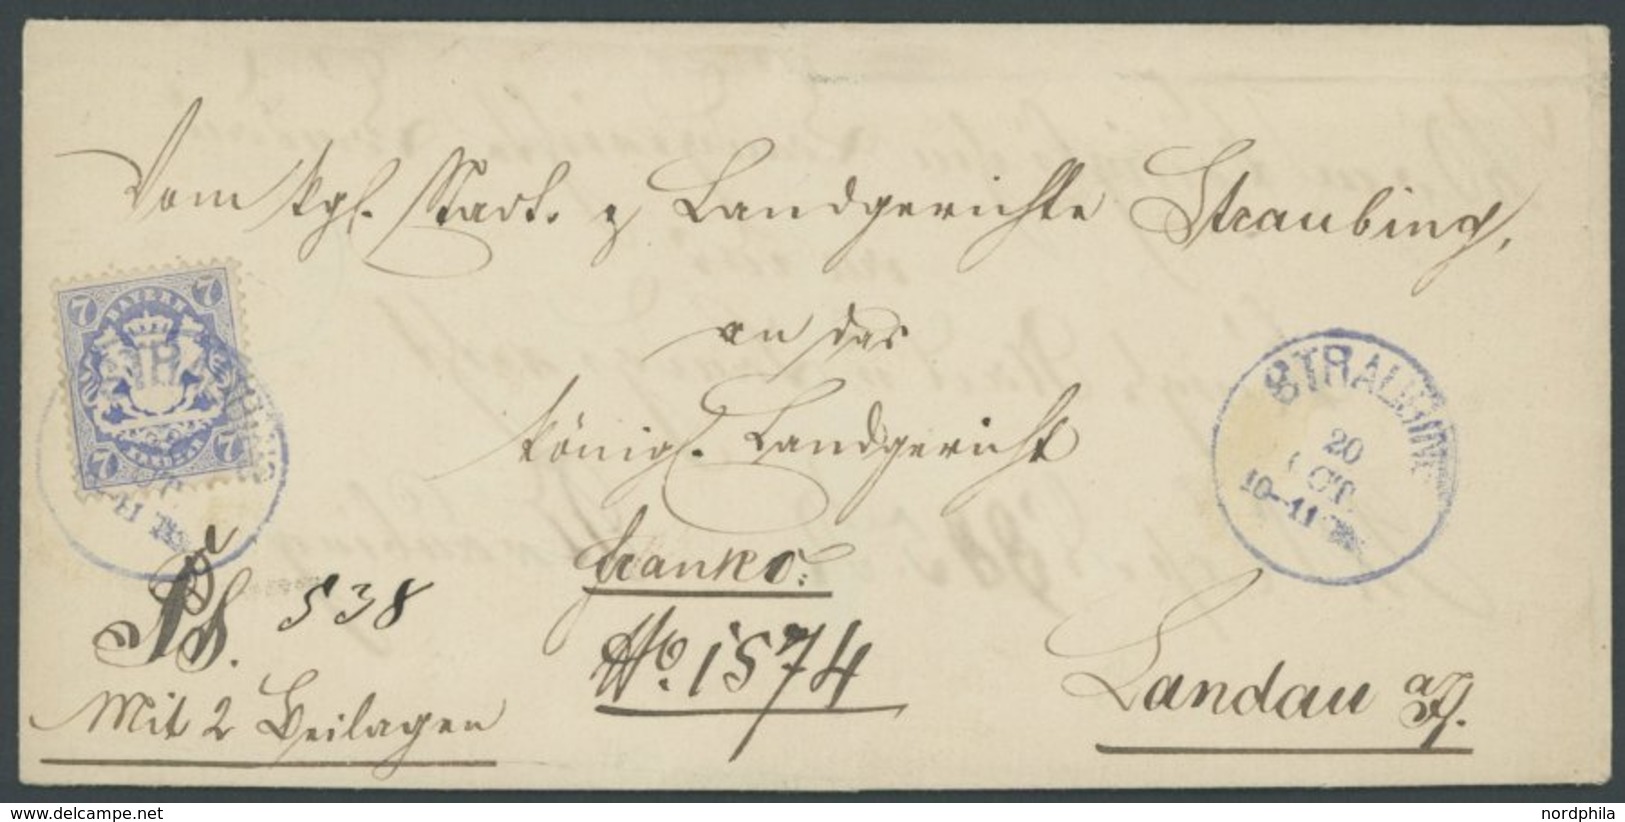 Vom kgl. Stadt. & Landgerichte Straubing,
an das
königl. Landgericht
franko.
No. 1574
Landau a/I.
538
Mit 2 Beilagen
7 BAYERN 7
7 7
STRAUBING
20
OCT.
10-11
www.delcampe.net
nordphila